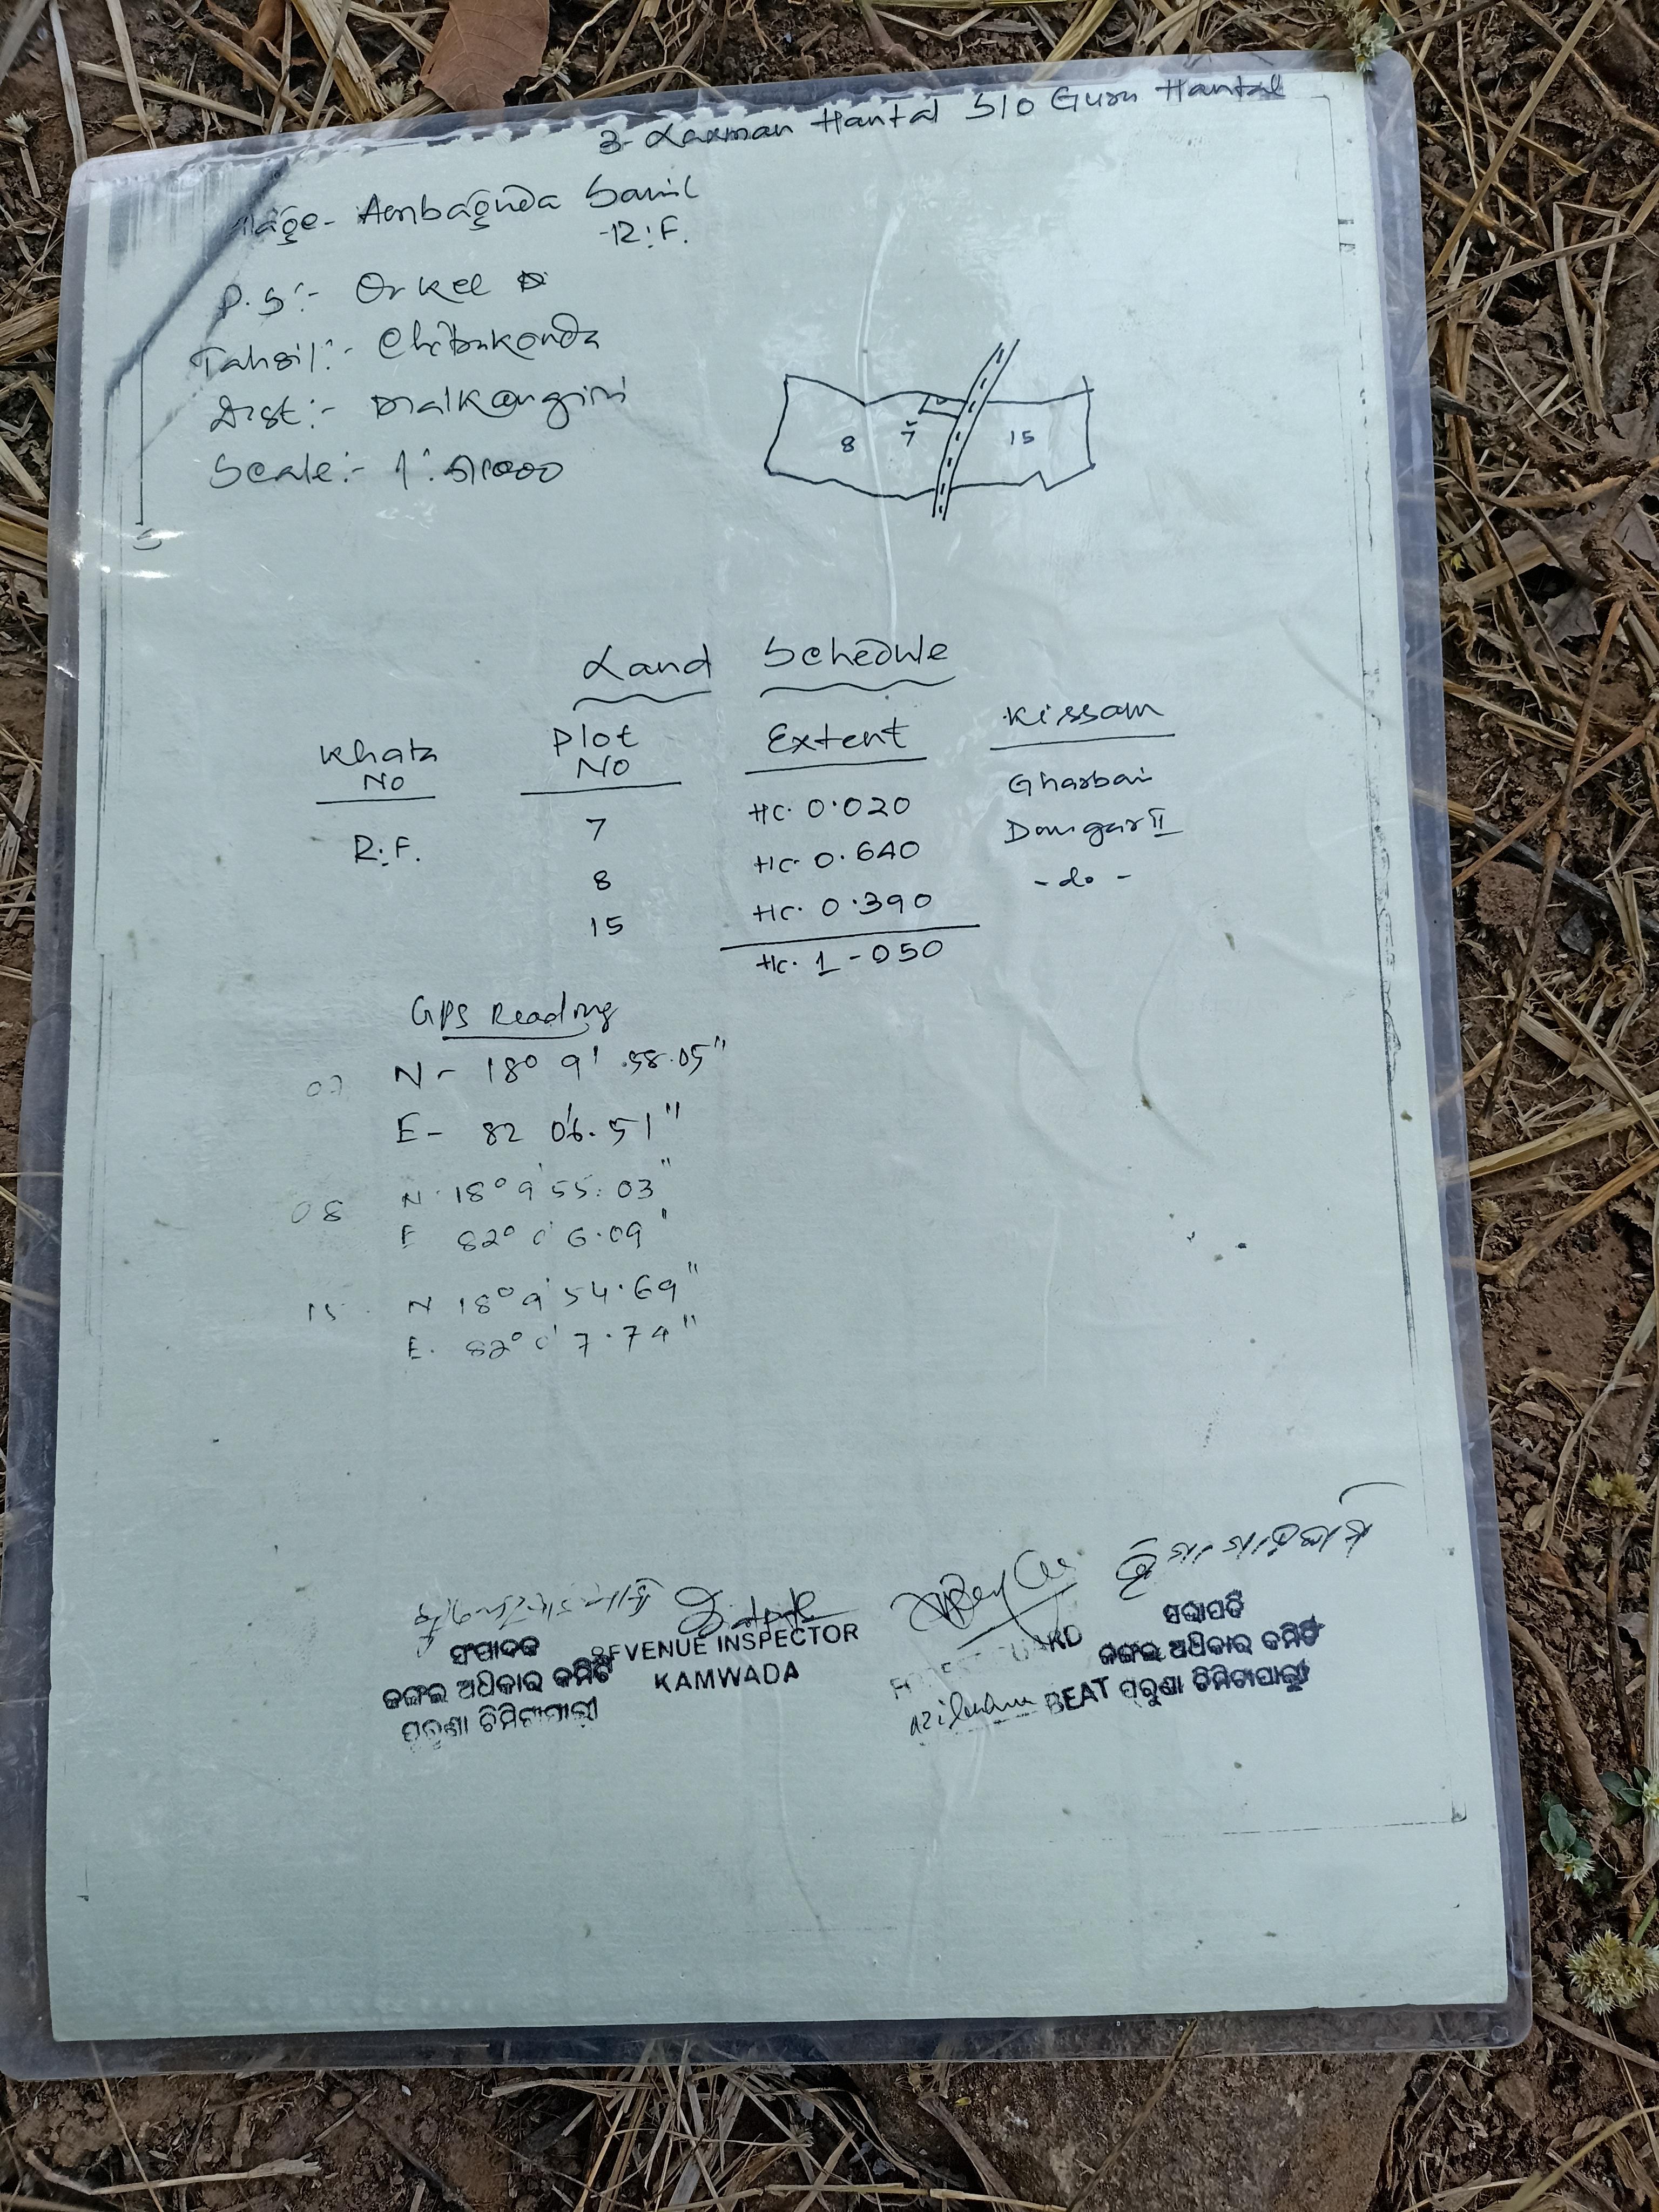 3- Laxman Hantal S/O Guru Hantal
llage- Ambaguda Samil
-R.F.
P.S:- Orkel
Tahsil:- Chitrakonda
Dist:- Malkangiri
Scale:- 1:
8 7 15
Land Schedule
Khata No Plot No Extent Kissam
R.F. 7 Hc. 0.020 Gharbari
8 Hc. 0.640 Dongar II
15 Hc. 0.390 -do-
Hc. 1-050
GPS Reading
07 N- 18° 9' 58.05"
E- 82 0'6.51"
08 N- 18° 9' 55.03"
E 82° 0' 6.09"
15. N 18° 9' 54.69"
E. 82° 0' 7.74"
ସଂପାଦକ
ଜଙ୍ଗଲ ଅଧିକାର କମିଟି
ପରୁଣା ଚିମିଟାପାଲ୍ଲୀ
REVENUE INSPECTOR
KAMWADA
GUARD
BEAT
ସଭାପତି
ଜଙ୍ଗଲ ଅଧିକାର କମିଟି
ପରୁଣା ଚିମିଟାପାଲ୍ଲୀ